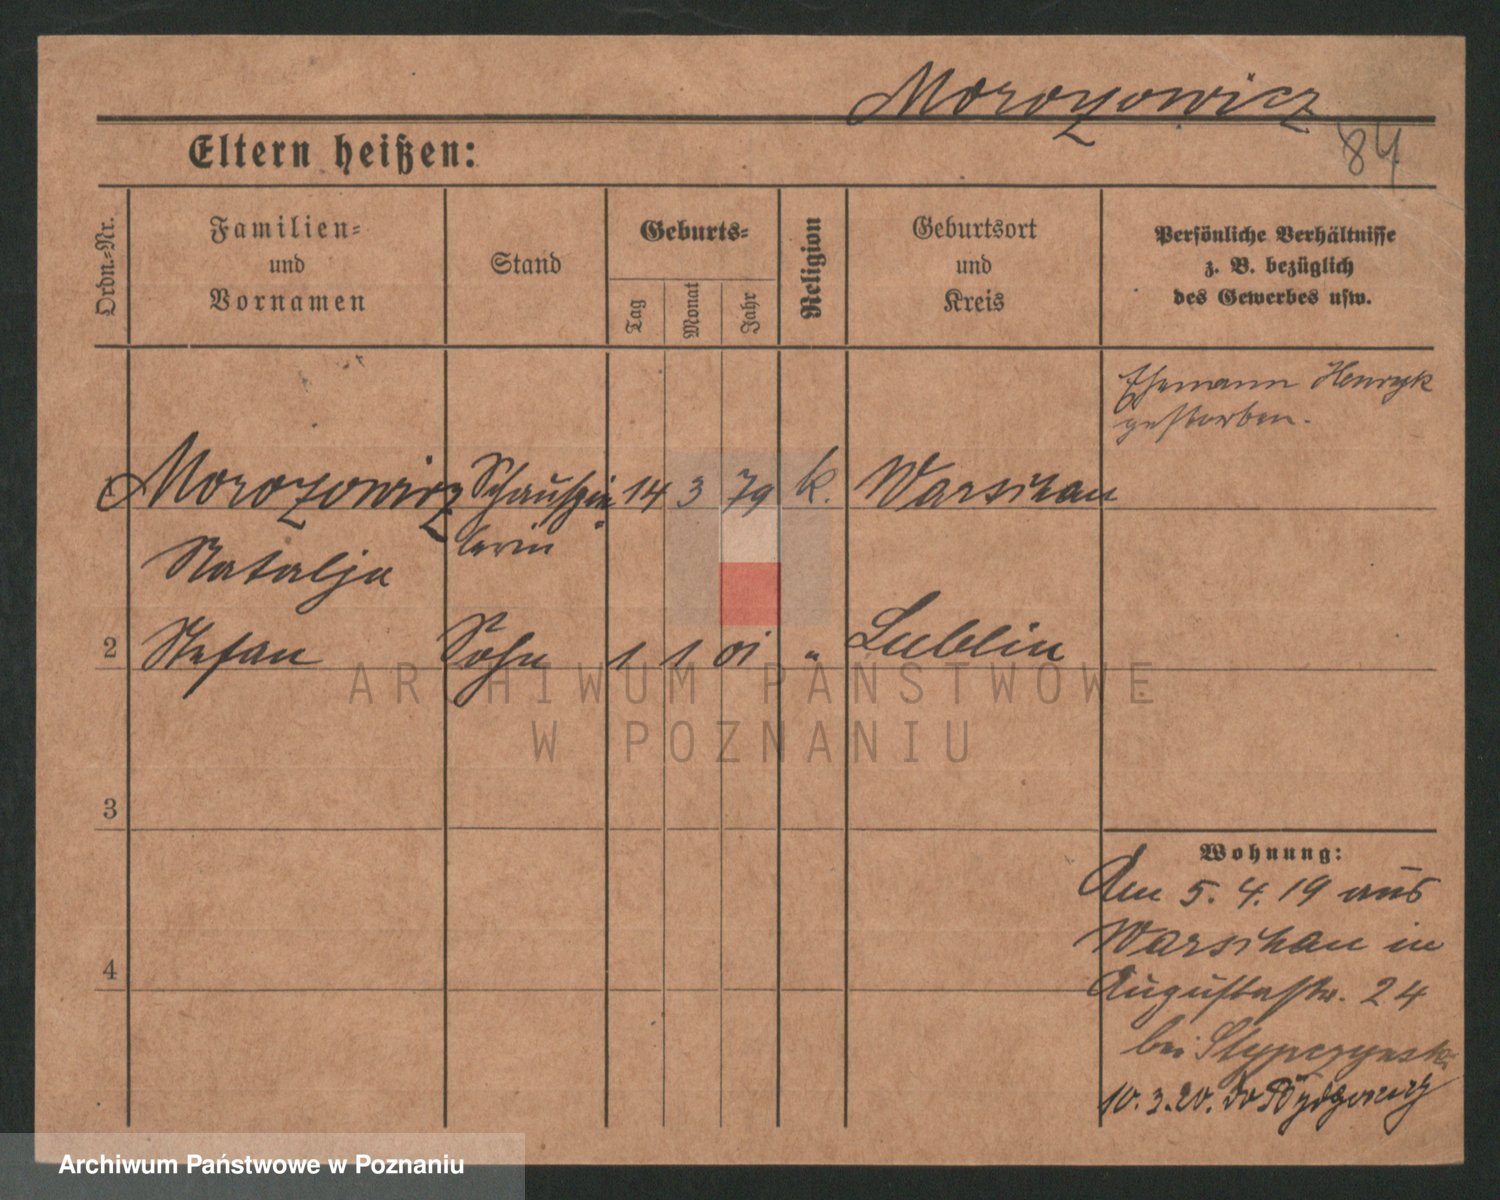 Morozowicz
84
Eltern heißen:
Ordn.-Nr.
Familien-
und
Vornamen
Stand
Geburts-
Tag
Monat
Jahr
Religion
Geburtsort
und
Kreis
Persönliche Verhältnisse
z. B. bezüglich
des Gewerbes usw.
Ehemann Henryk
gestorben.
1 Morozowicz Schauspie- 14 3 79 k. Warschau
lerin
Natalja
2 Stefan Sohn 1 1 01 " Lublin
ARCHIWUM PAŃSTWOWE
W POZNANIU
3
Wohnung:
Am 5. 4. 19 aus
Warschau in
4
Augustastr. 24
bei Stypczynski
10.3.20. do Bydgoszcz
Archiwum Państwowe w Poznaniu